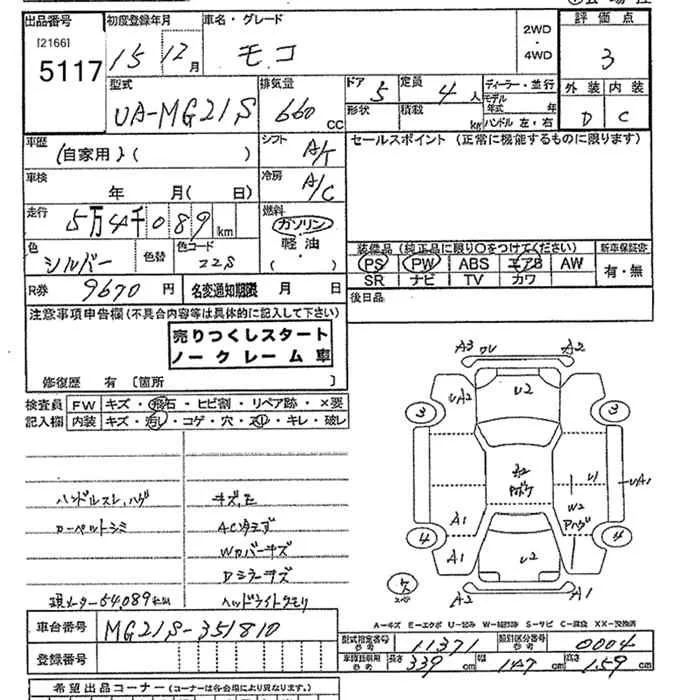 出品番号 初度登録年月 車名・グレード 2WD・4WD 評価点
[2166]
5117
15 12月 モコ 3
型式 排気量 ドア 定員 ディーラー・並行 外装 内装
UA-MG21S 660 CC 5 4人 モデル年式 年
形状 積載 kg ハンドル 左・右 D C
車歴 シフト セールスポイント(正常に機能するものに限ります)
(自家用)( ) A/T
車検 冷房
年 月( 日) A/C
走行 燃料
5万4千089km ガソリン
色 色替 色コード 軽油 装備品(純正品に限り○をつけてください) 新車保証書
シルバー 22S ( ) PS PW ABS エアB AW 有・無
SR ナビ TV カワ
R券 9670円 名変通知期限 月 日 後日品
注意事項申告欄(不具合内容等は具体的に記入して下さい)
売りつくしスタート
ノークレーム車
修復歴 有 〔箇所 〕
検査員 FW キズ・飛石・ヒビ割・リペア跡・×要
記入欄 内装 キズ・汚レ・コゲ・穴・スレ・キレ・破レ
ハンドルスレ,ハゲ キズ
カーペットシミ
Wカバーキズ
Dミラーキズ
現メーター54,089km ヘッドライトクモリ
A3 ワレ A2
UA2 U2
3 3
U1 UA1
A1 W2
4 4
A1 U2
A2 A1
A-キズ E-エクボ U-凹み W-補修跡 S-サビ C-腐食 XX-交換済
車台番号 MG21S-351810
型式指定番号 参考 11371 類別区分番号 参考 0004
登録番号
車庫証明用 参考 長さ 339cm 幅 147cm 高さ 159cm
希望出品コーナー(コーナーは各会場により異なります。)